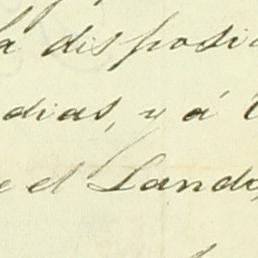 a disposi
dias, y á
e el Lando